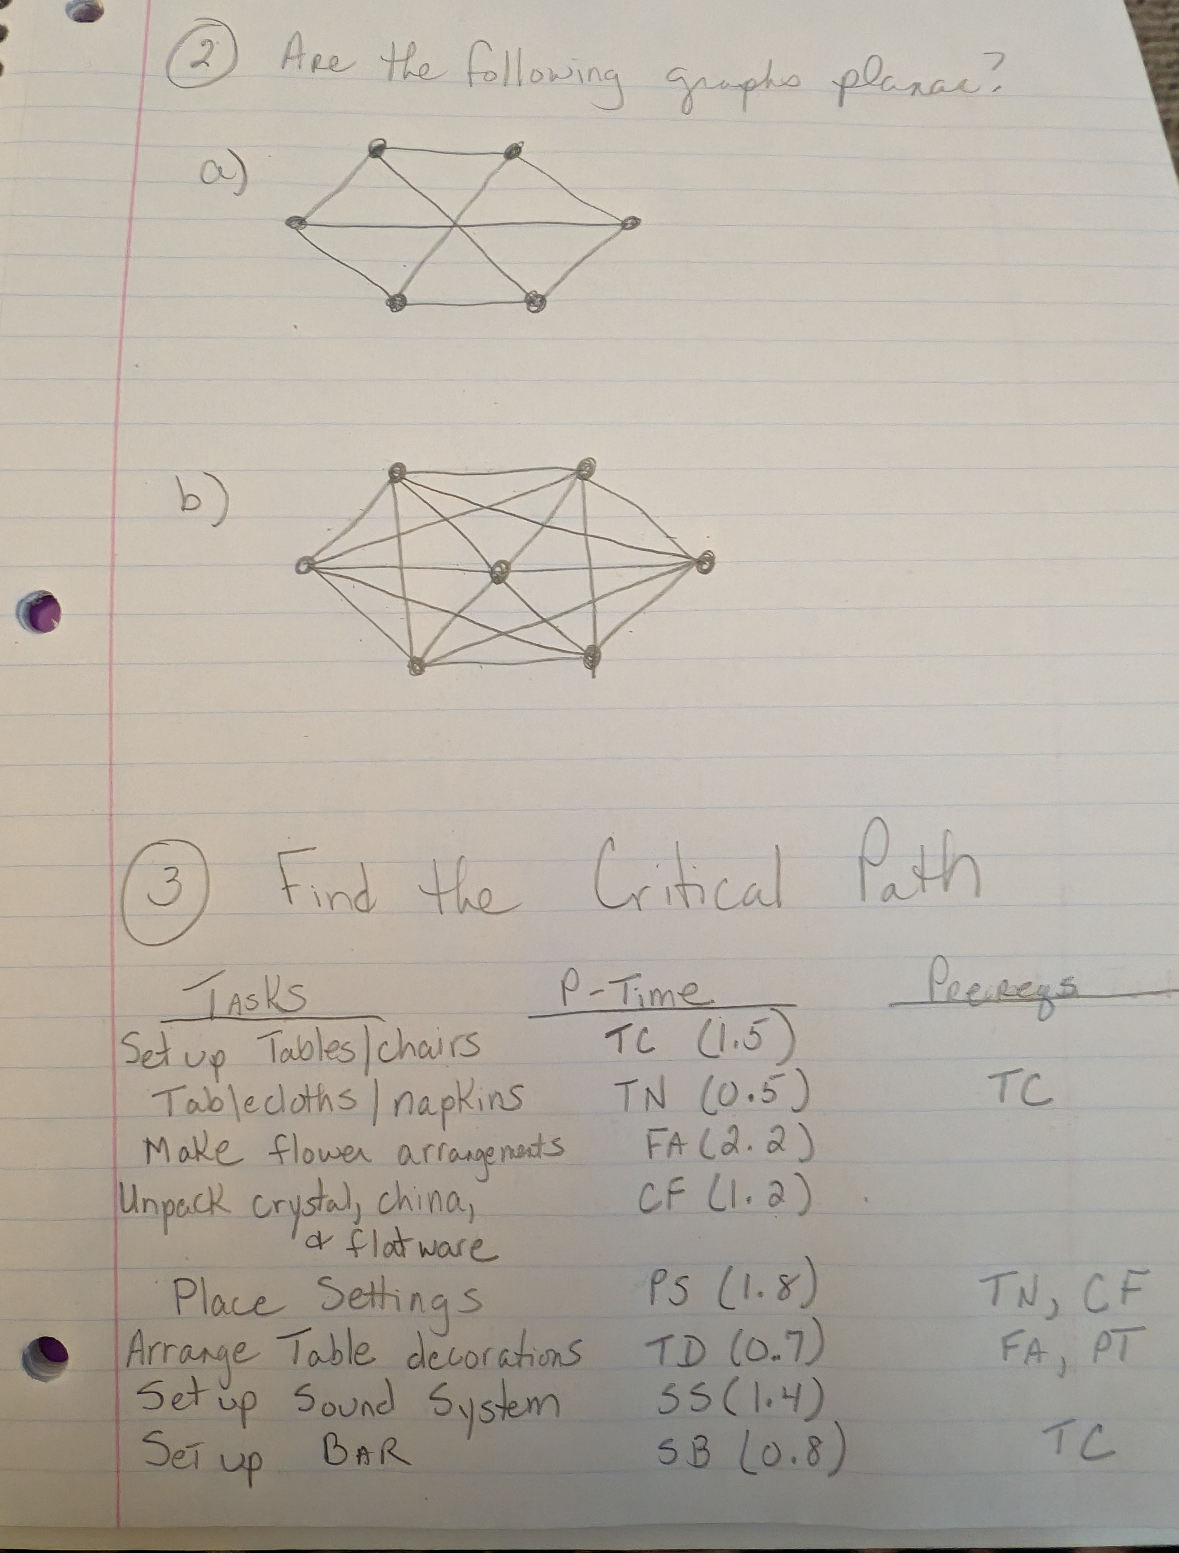 2 Are the following graphs planar?
a)
b)
3 Find the Critical Path
TASKS P-Time Prereqs
Set up Tables/chairs TC (1.5)
Tablecloths/napkins TN (0.5) TC
Make flower arrangements FA (2.2)
Unpack crystal, china, CF (1.2)
& flatware
Place Settings PS (1.8) TN, CF
Arrange Table decorations TD (0.7) FA, PT
Set up Sound System SS (1.4)
Set up BAR SB (0.8) TC